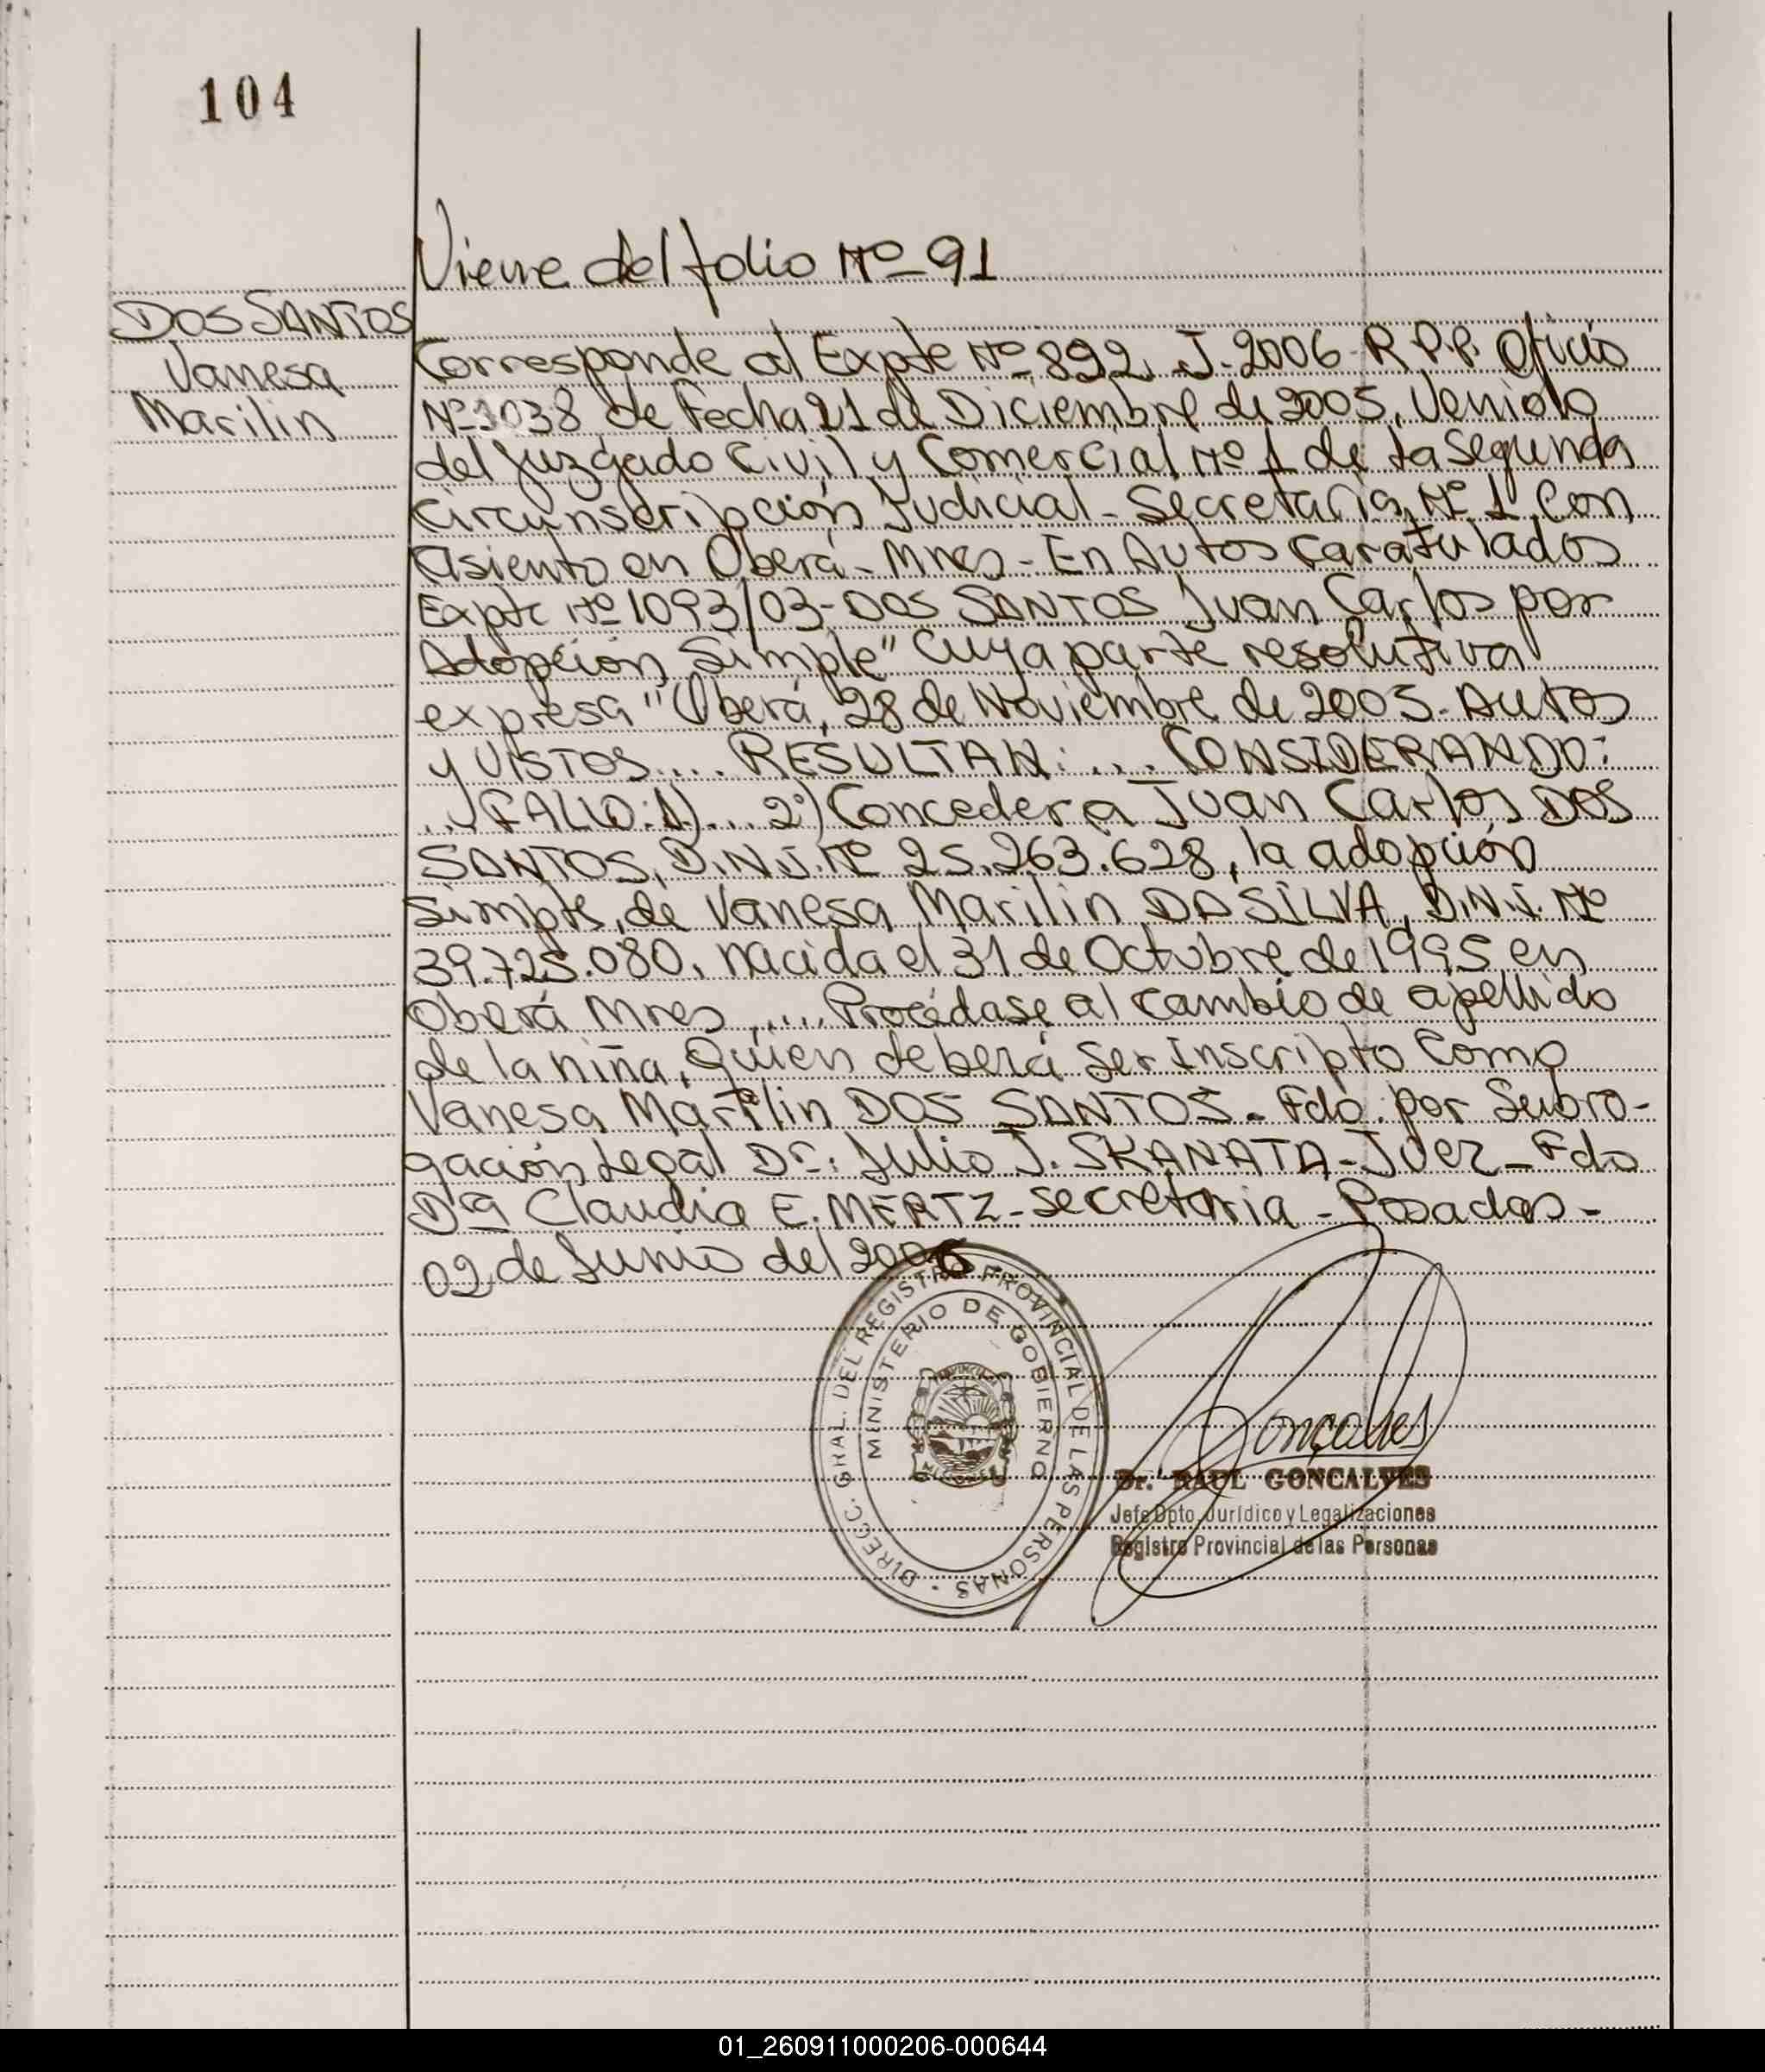 104
Viene del folio Nº 91
DOS SANTOS
Vanesa
Marilin
Corresponde al Expte Nº 892. J. 2006 - R.P.P. Oficio
Nº 1038 de Fecha 21 de Diciembre de 2005, Venido
del Juzgado Civil y Comercial Nº 1 de la Segunda
Circunscripción Judicial - Secretaria, Nº 1 Con
Asiento en Oberá - Mnes - En Autos Caratulados
Expte Nº 1093/03 - DOS SANTOS Juan Carlos por
Adopción Simple" Cuya parte resolutiva
expresa "Oberá, 28 de Noviembre de 2005. Autos
y VISTOS.... RESULTAN: .... CONSIDERANDO:
... FALLO: 1)... 2º) Conceder a Juan Carlos DOS
SANTOS, D.N.I. Nº 25.263.628, la adopción
Simple, de Vanesa Marilin DA SILVA, D.N.I. Nº
39.725.080, nacida el 31 de Octubre de 1995 en
Oberá Mnes ..... Procédase al cambio de apellido
de la niña, Quien deberá Ser Inscripto Como
Vanesa Marilin DOS SANTOS - Fdo. por Subro-
gación Legal Dr: Julio J. SKANATA - Juez - Fdo
Dra Claudia E. MERTZ - Secretaria - Posadas -
02 de Junio del 2006
DIRECC. GRAL. DEL REGISTRO PROVINCIAL DE LAS PERSONAS
MINISTERIO DE GOBIERNO
Goncalves
Dr. RAUL GONCALVES
Jefe Dpto. Jurídico y Legalizaciones
Registro Provincial de las Personas
01_260911000206-000644